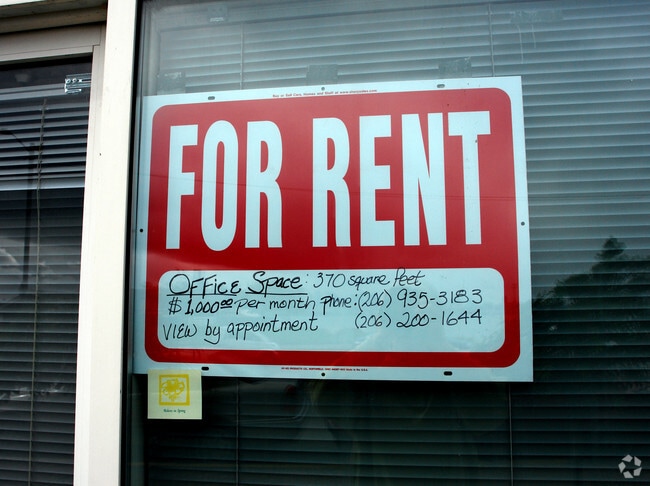 FOR RENT
OFFICE SPACE: 370 square feet
$1,000.00 per month phone: (206) 935-3183
VIEW by appointment (206) 200-1644